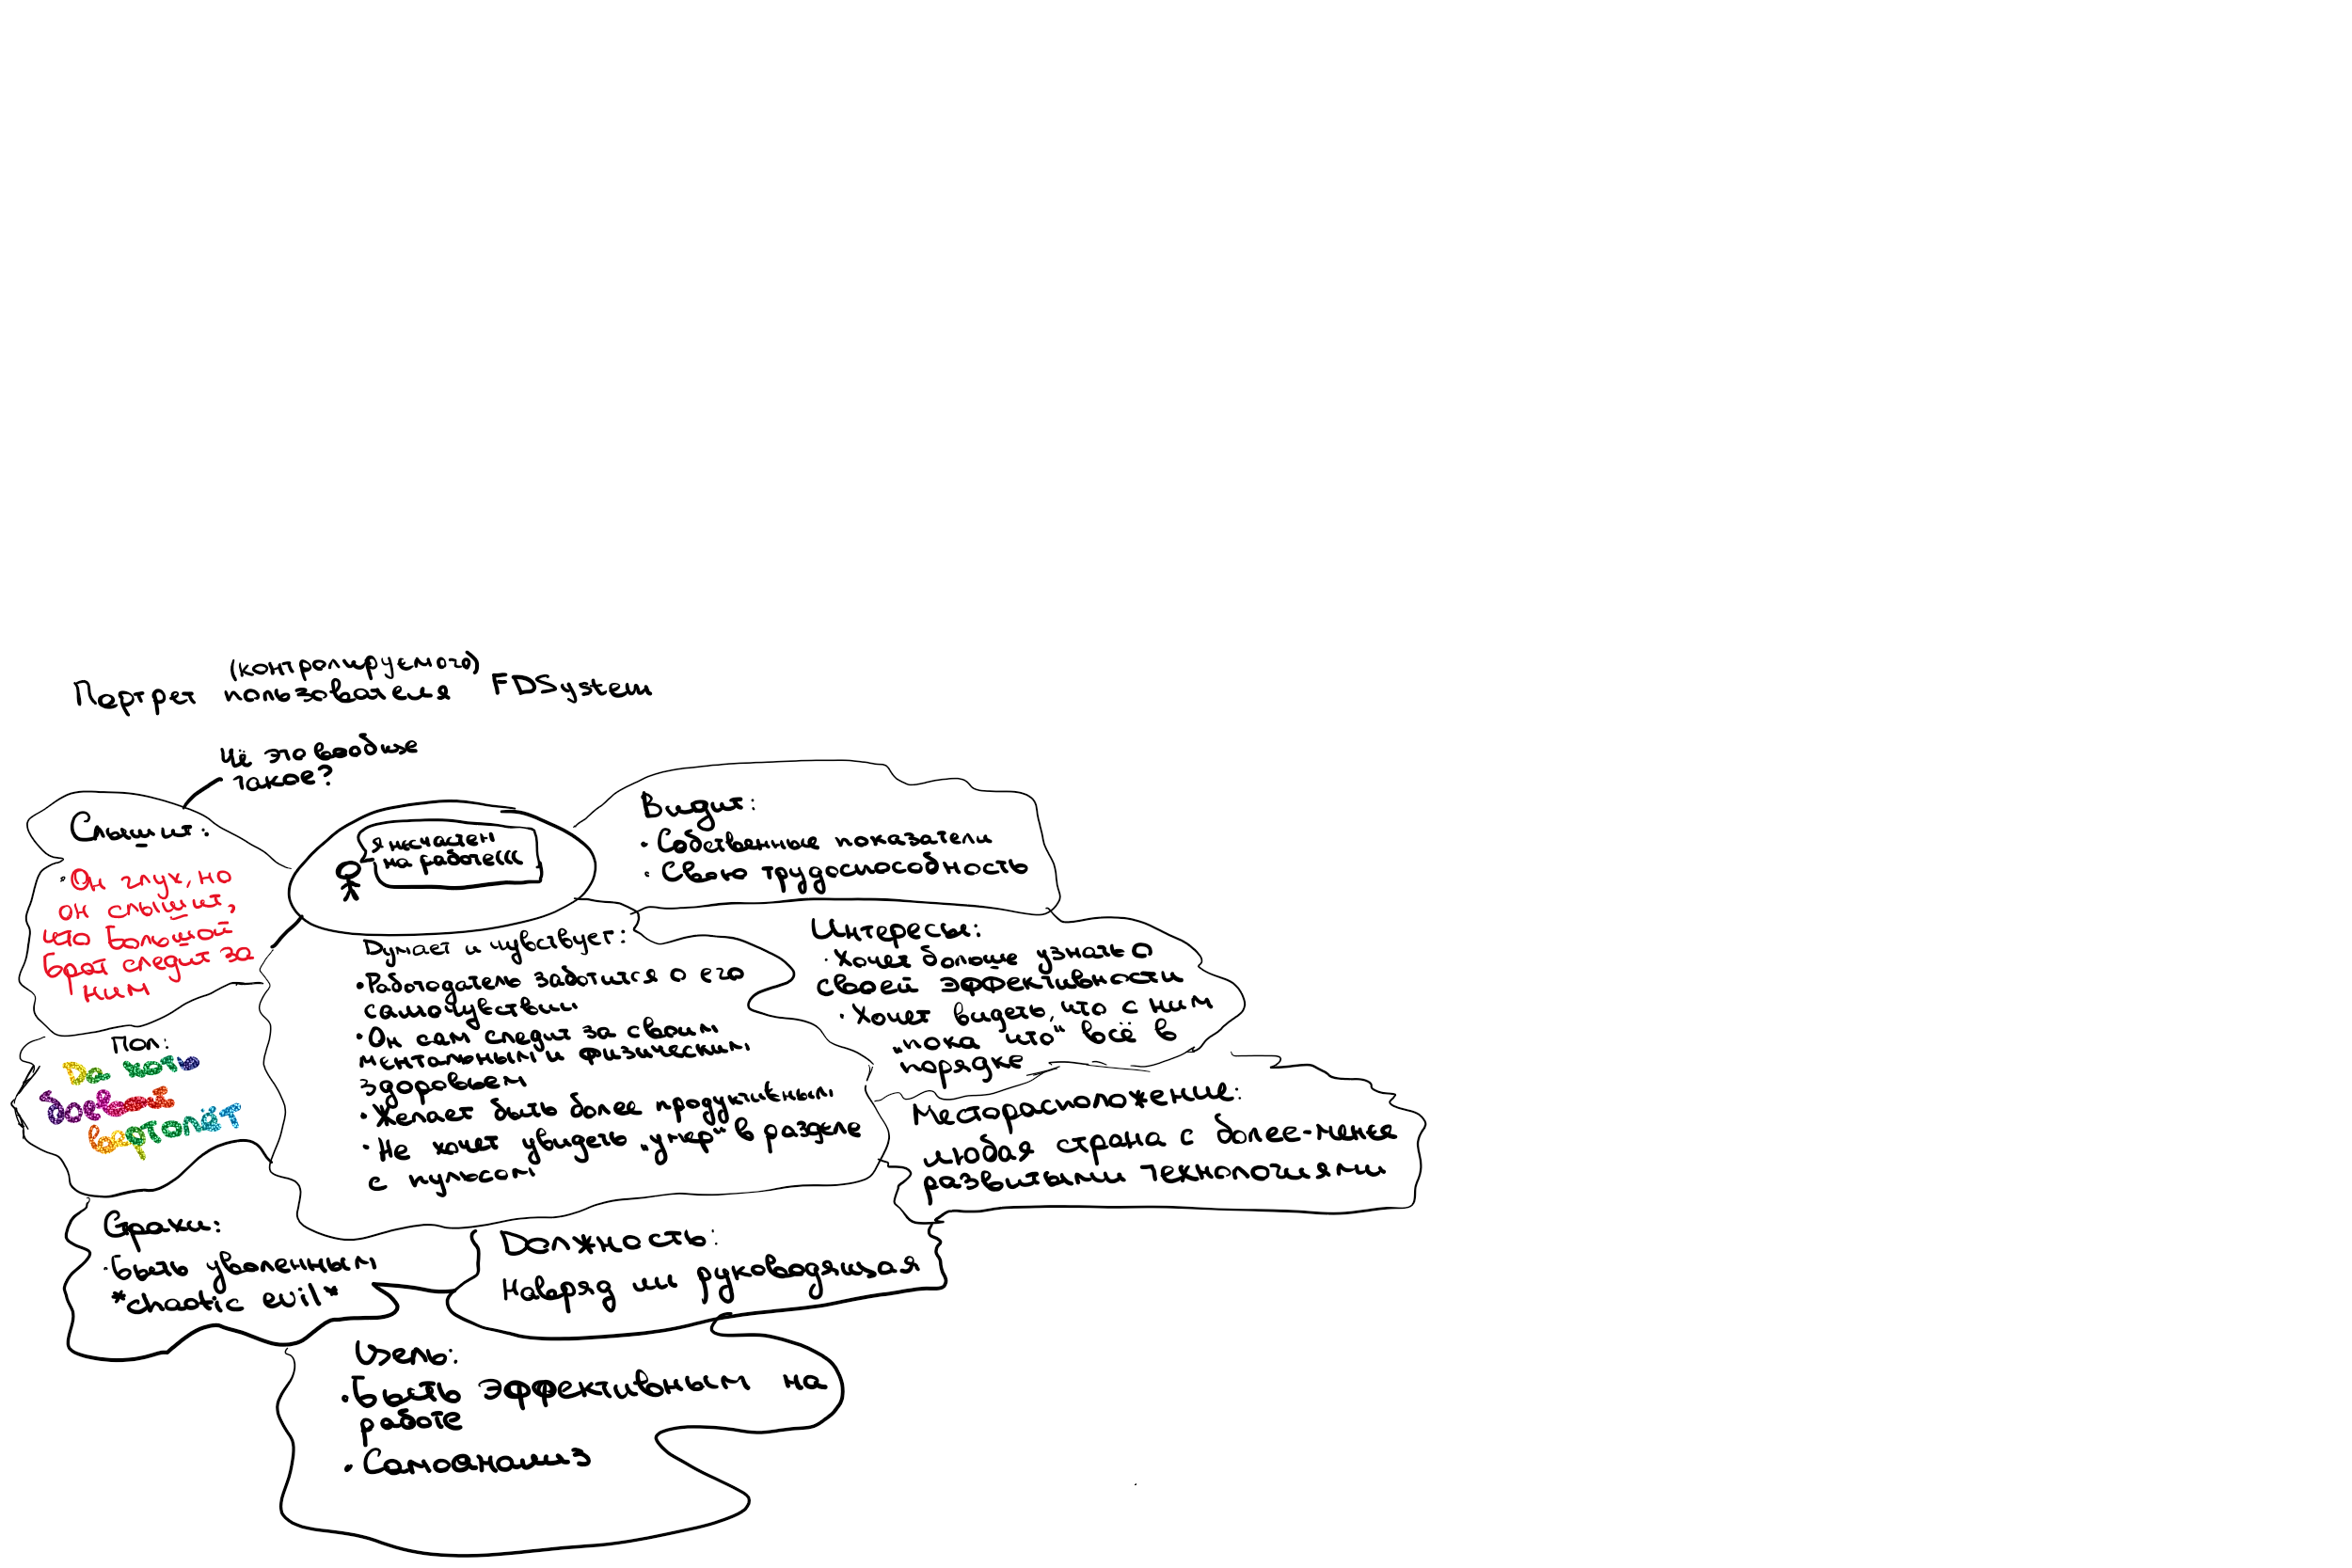 (контролируемого)
Портрет пользователя FDSystem
Чё это вообще
такое?
Слышит:
• Он глух, но
он слышит,
что Большой
Брат следит за
ним
Я несчастен
на работе(((
Видит:
• Собственные показатели
• Свою трудоспособность
Думает и чувствует:
• Работодатель заботится о его
самочувствии
• Он сам следит за своим
ментальным и физическим
здоровьем
• Желает быть более продуктивным
• Не хочет увидеть „умер“ в разделе
с пульсом
Интересы:
• Хочет больше узнать о
своей эффективности
• Хочет видеть, что с ним
„пока что“ всё в
порядке
Пол:
Да хоть
боевой
вертолёт
Месторасположение:
любая страна с более-менее
развитыми технологиями
Страхи:
• Быть уволенным
*chaotic evil*
Должность:
Навряд ли руководящая
Цель:
• Быть эффективным на
работе
• Самоанализ